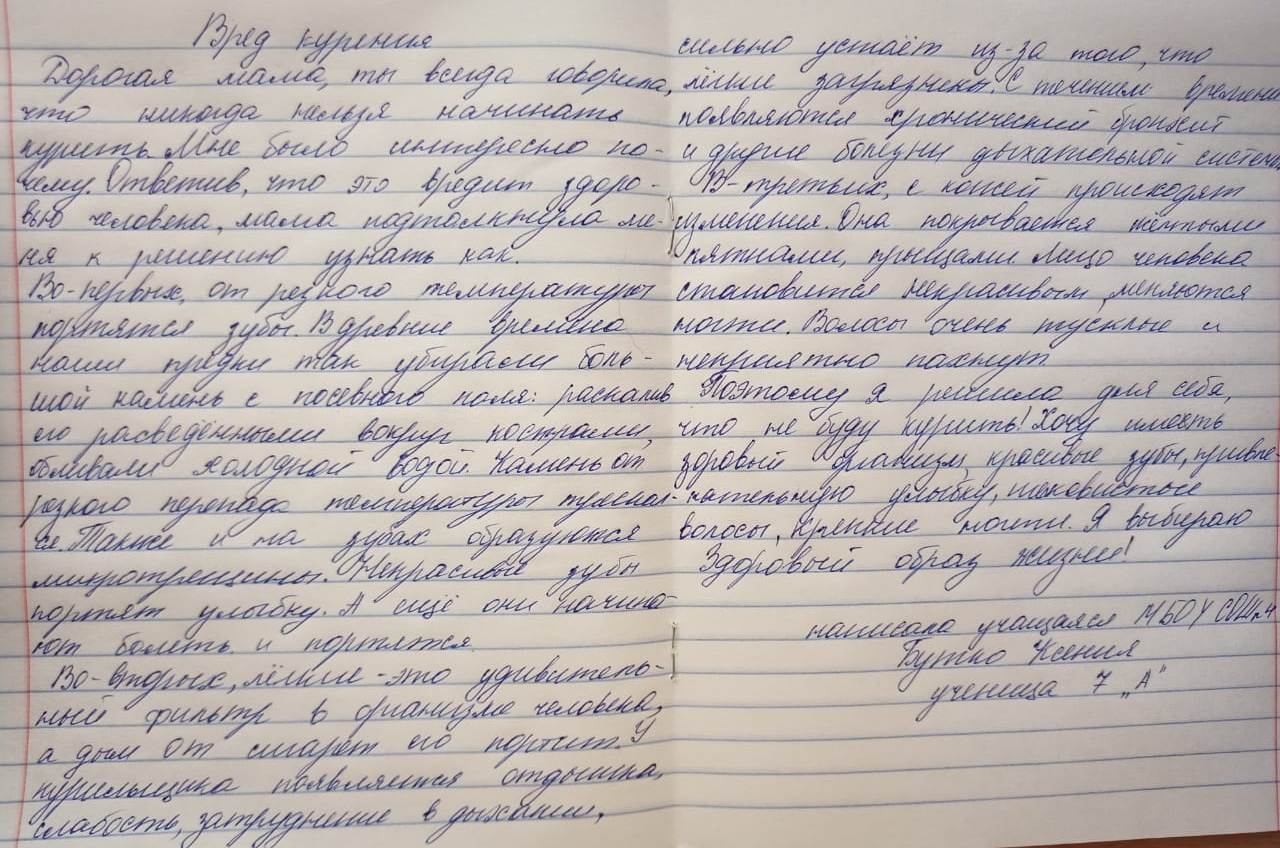 Вред курения
Дорогая мама, ты всегда говорила,
что никогда нельзя начинать
курить. Мне было интересно по-
чему. Ответив, что это вредит здоро-
вью человека, мама подтолкнула ме-
ня к решению узнать как.
Во-первых, от резкого температуры
портятся зубы. В древние времена
наши предки так убирали боль-
шой камень с посевного поля: раскалив
его разведёнными вокруг кострами,
обливали холодной водой. Камень от
резкого перепада температуры трескал-
ся. Также и на зубах образуются
микротрещины. Некрасивые зубы
портят улыбку. А ещё они начина-
ют болеть и портятся.
Во-вторых, лёгкие - это удивитель-
ный фильтр в организме человека,
а дым от сигарет его портит. У
курильщика появляется отдышка,
слабость, затруднение в дыхании,
сильно устаёт из-за того, что
лёгкие загрязнены. С течением времени
появляются хронический бронхит
и другие болезни дыхательной системы.
В-третьих, с кожей происходят
изменения. Она покрывается жёлтыми
пятнами, прыщами. Лицо человека
становится некрасивым, меняются
ногти. Волосы очень тусклые и
неприятно пахнут.
Поэтому я решила для себя,
что не буду курить! Хочу иметь
здоровый организм, красивые зубы, привле-
кательную улыбку, шелковистые
волосы, крепкие ногти. Я выбираю
Здоровый образ жизни!
написала учащаяся МБОУ СОШ №4
Бутко Ксения
ученица 7 „А"